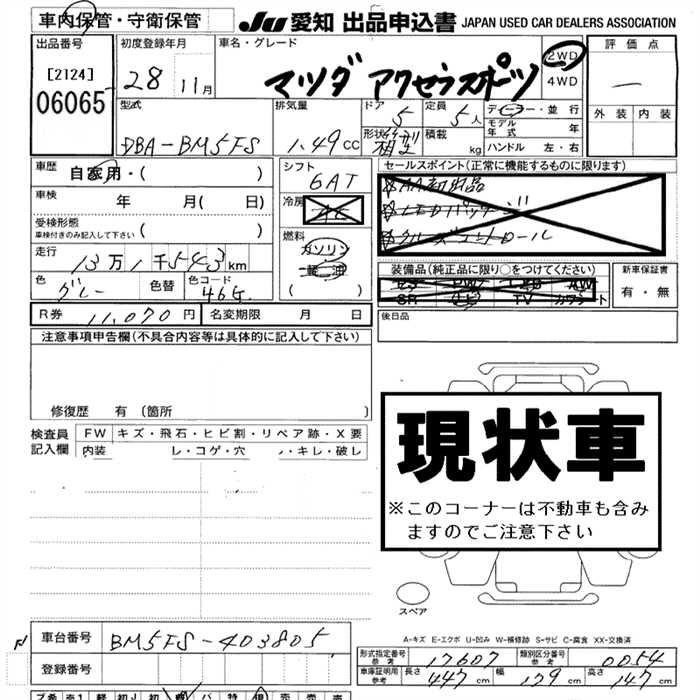 車内保管・守衛保管
JU 愛知 出品申込書 JAPAN USED CAR DEALERS ASSOCIATION
出品番号
[2124]
06065
初度登録年月
28 11月
車名・グレード
マツダ アクセラスポーツ
2WD
4WD
評価点
外装 内装
型式
DBA-BM5FS
排気量
1.49cc
ドア
5
定員
5人
形状
積載
kg
ディーラー・並行
モデル年式 年
ハンドル 左・右
車歴
自家用・( )
車検 年 月( 日)
受検形態
車検付きのみ記入して下さい ( )
走行
13万1千543km
色
グレー
色替
色コード
46G
シフト
6AT
冷房
燃料
ガソリン
軽油
( )
セールスポイント(正常に機能するものに限ります)
☆AA初出品
☆LEDパッケージ
☆クルーズコントロール
装備品(純正品に限り○をつけてください)
SR ナビ TV カワシート
新車保証書
有・無
R券 11,070円
名変期限 月 日
後日品
注意事項申告欄(不具合内容等は具体的に記入して下さい)
修復歴 有 (箇所 )
検査員記入欄
FW キズ・飛石・ヒビ割・リペア跡・X要
内装 レ・コゲ・穴 ・キレ・破レ
現状車
※このコーナーは不動車も含み
ますのでご注意下さい
スペア
A-キズ E-エクボ U-凹み W-補修跡 S-サビ C-腐食 XX-交換済
車台番号 BM5FS-403805
登録番号
形式指定番号 参考 17607
類別区分番号 参考 0054
車庫証明用 参考 長さ 447cm 幅 179cm 高さ 147cm